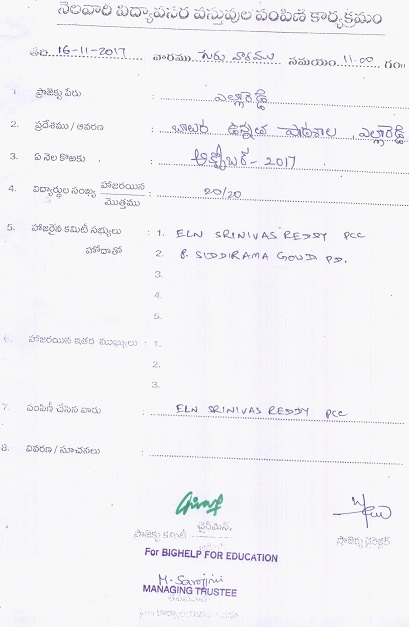 నెలవారీ విద్యావసర వస్తువుల పంపిణీ కార్యక్రమం
తేది 16-11-2017 వారము గురు వారము సమయం 11.00 గం
1 ప్రాజెక్టు పేరు : ఎల్లారెడ్డి
2. ప్రదేశము / ఆవరణ : బాలుర ఉన్నత పాఠశాల, ఎల్లారెడ్డి
3. ఏ నెల కొఱకు : అక్టోబర్ - 2017
4. విద్యార్థుల సంఖ్య హాజరయిన / మొత్తము : 20/20
5. హాజరైన కమిటీ సభ్యులు : 1. ELN SRINIVAS REDDY PCC
హోదాతో 2. B. SIDDIRAMA GOUD P.D.
3.
4.
5.
6. హాజరయిన ఇతర ముఖ్యులు : 1.
2.
3.
7. పంపిణీ చేసిన వారు : ELN SRINIVAS REDDY PCC
8. వివరణ / సూచనలు :
ప్రాజెక్టు కమిటీ చైర్మెన్,
ప్రాజెక్టు డైరెక్టర్
For BIGHELP FOR EDUCATION
M. Sarojini
MANAGING TRUSTEE